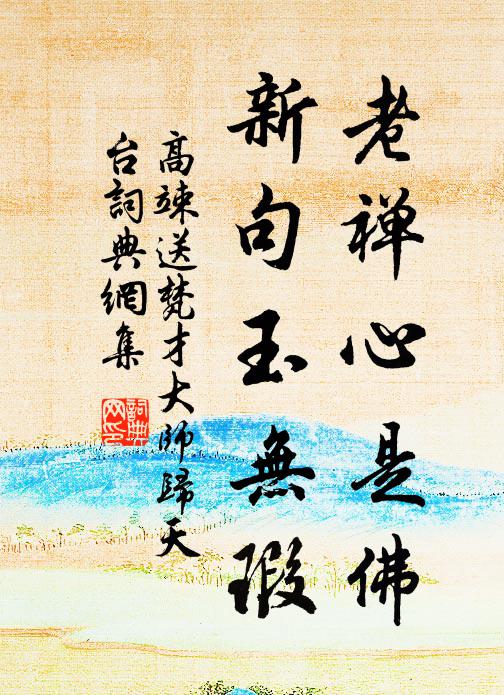 老禅心是佛
新句玉無瑕
高竦送梵才大師歸天
台詞典網集
詞典
网印